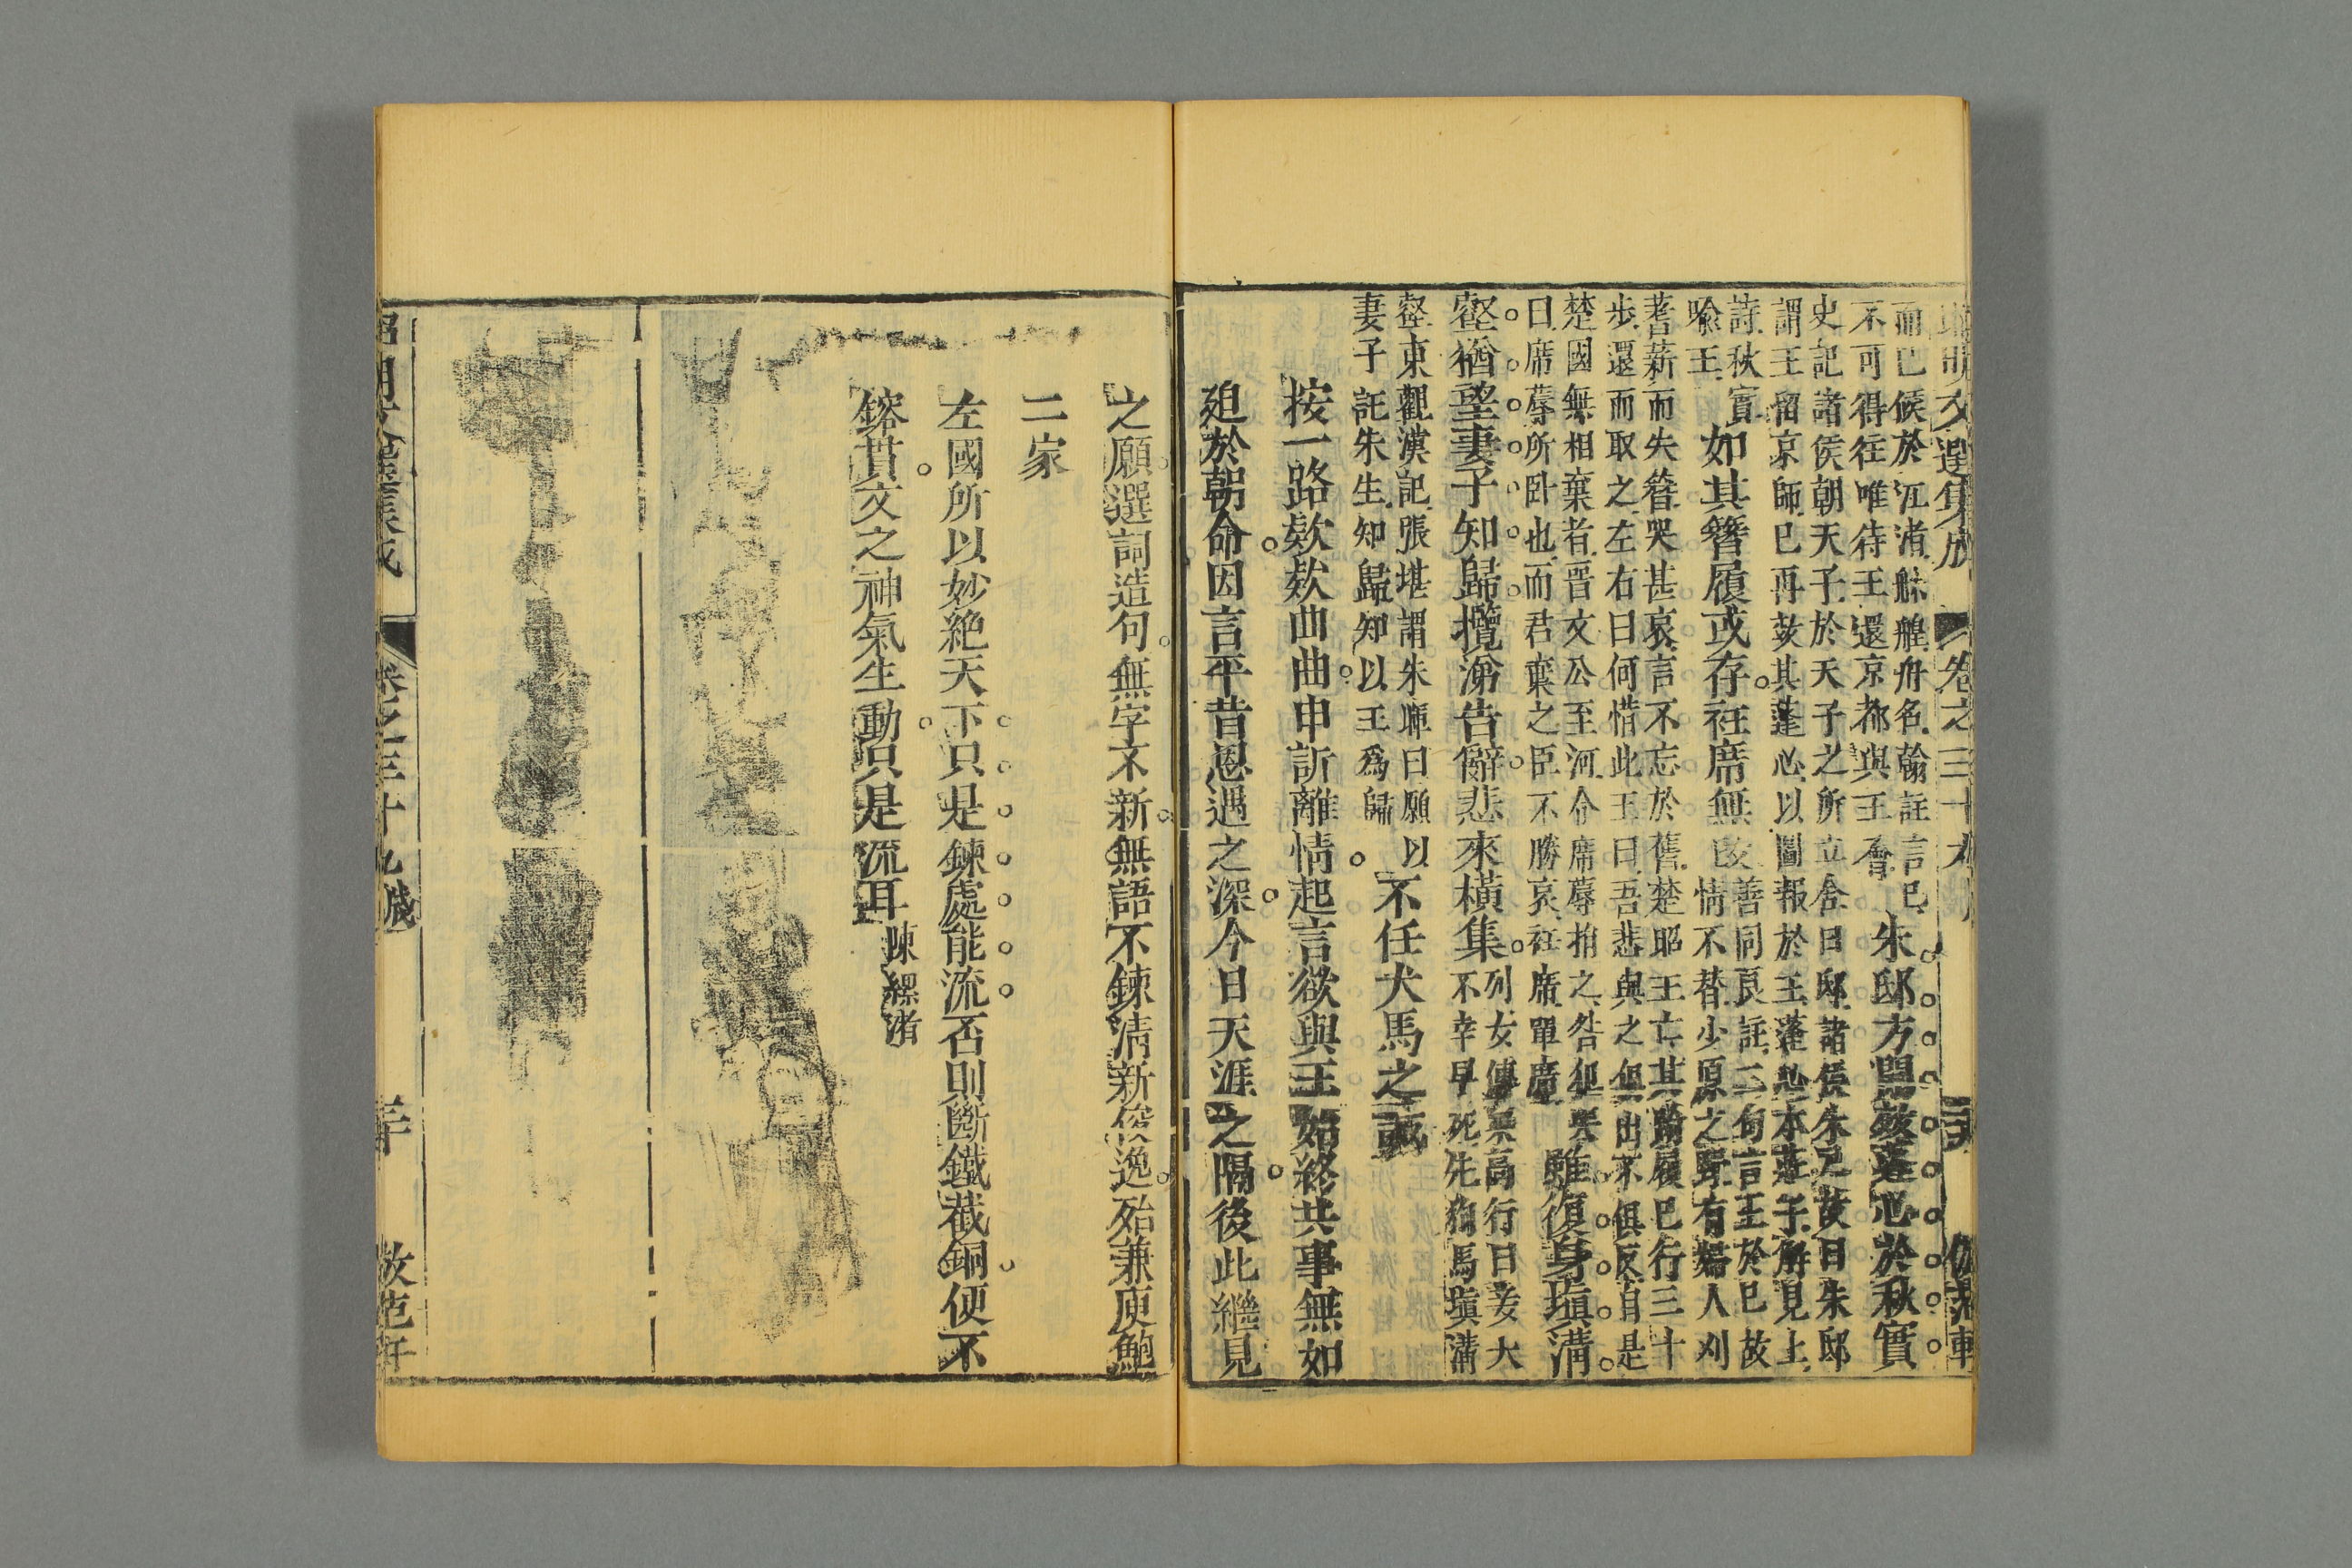 文選集成 卷之三十九
而已候於江渚舲艎舟名翰註言已
不可得往唯待王還京都與王會
朱邸方開效蓬心於秋實
史記諸侯朝天子於天子之所立舍曰邸諸侯朱戶故曰朱邸
謂王留京師已再效其蓬心以圖報於王蓬心本莊子解見上
詩秋實
善同良註二句言王於已故
喻王
如其簪履或存衽席無改
情不替少原之野有婦人刈
蓍薪而失簪哭甚哀言不忘於舊楚昭王亡其踦履已行三十
步還而取之左右曰何惜此王曰吾悲與之俱出不俱反自是
楚國無相棄者晉文公至河令席蓐捐之咎犯哭
曰席蓐所卧也而君棄之臣不勝哀衽席單席
雖復身塡溝
壑猶望妻子知歸攬涕告辭悲來橫集
列女傳梁高行曰妾夫
不幸早死先狗馬塡溝
壑東觀漢記張堪謂朱暉曰願以
妻子託朱生知歸知以王爲歸
不任犬馬之誠
按一路欵欵曲曲申訴離情起言欲與王始終共事無如
廹於朝命因言平昔恩遇之深今日天涯之隔後此繼見
之願選詞造句無字不新無語不鍊清新俊逸殆兼庾鮑
二家
左國所以妙絶天下只是鍊處能流否則斷鐵截銅便不
鎔貫文之神氣生動只是流耳
陳螺渚
昭明文選集成 卷之三十九 牋 三十 倣范軒